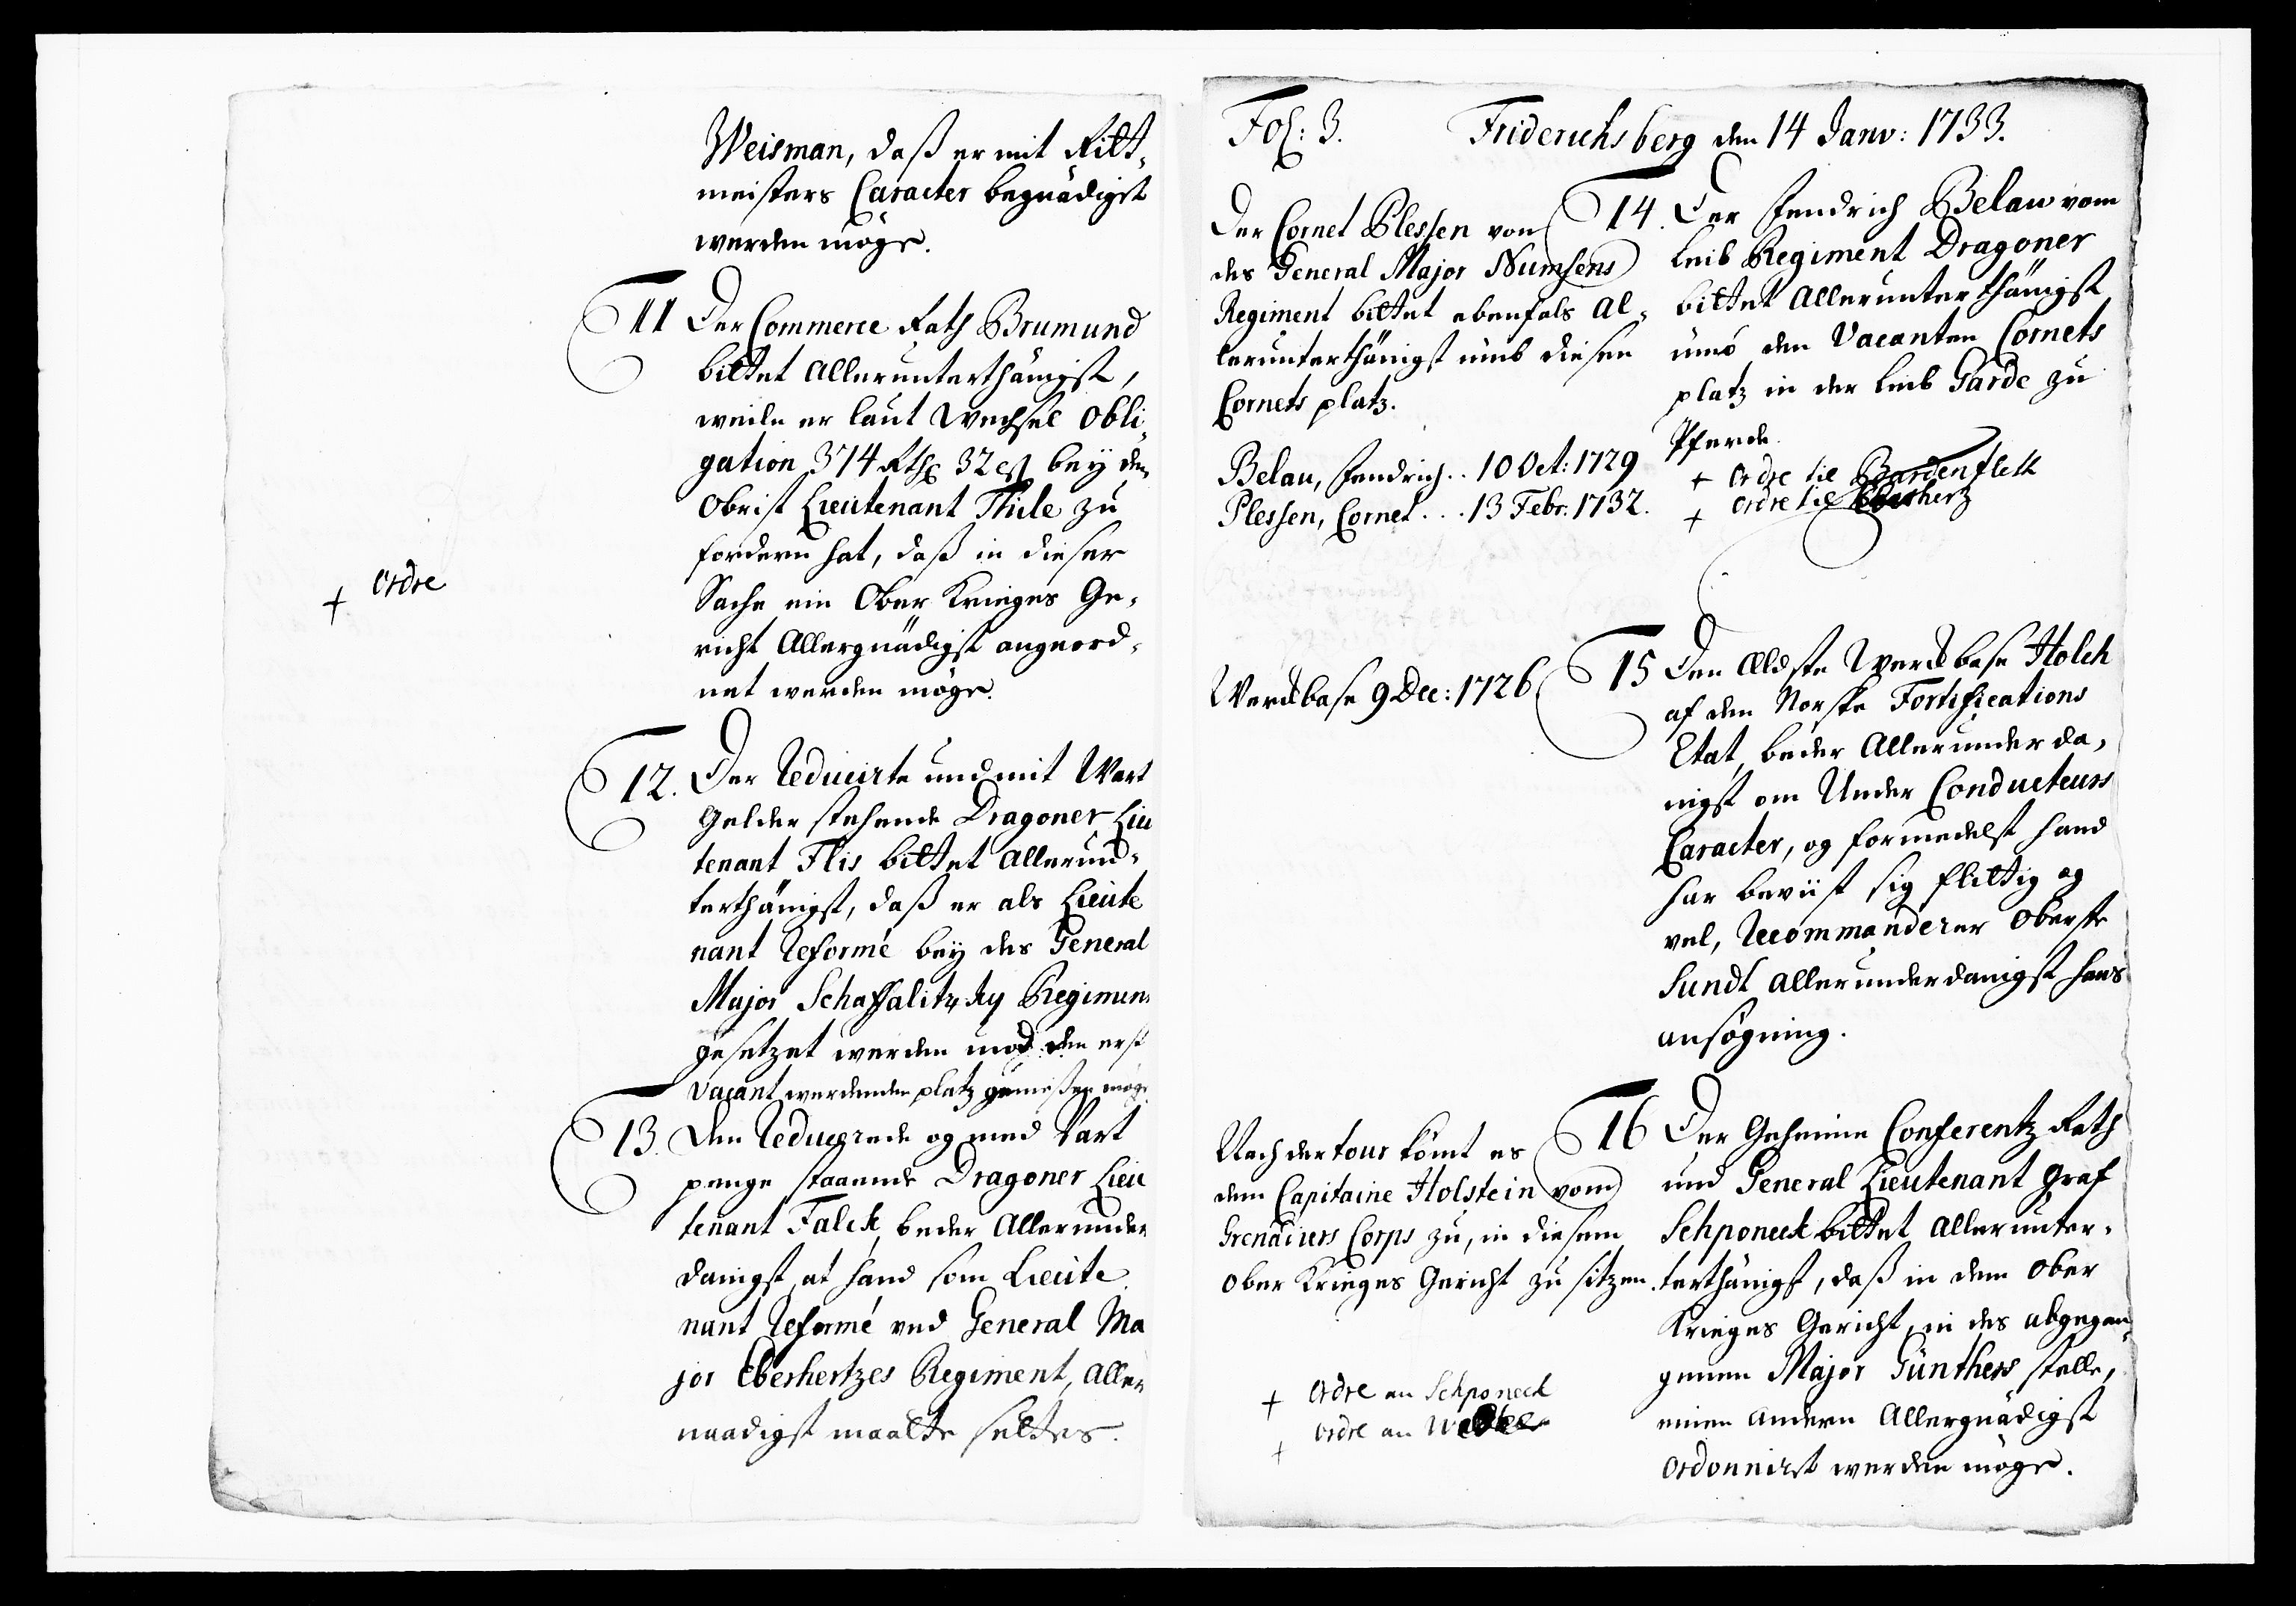 Weisman, daß er mit Ritt¬
meisters Caracter begnädiget
werden möge.
11 Der Commerce Rath Brumund
bittet Allerunterthänigst,
weiln er laut Wechsel obli¬
gation 374 Rthr 32 ß bey dem
Obrist Lieutenant Thile zu
fordern hat, daß in dieser
Sache ein Ober Krieges Ge¬
richt Allergnädigst angeord¬
net werden möge.
+ Ordre
12. Der Reducirte und mit Wart
Gelder stehende Dragoner Lieu
tenant Flis bittet Allerun¬
terthänigst, daß er als Lieute
nant Reformé bey des General
Major Schaffalitzky Regimen
gesetzet werden und den erst
vacant werdenden platz genießen möge
13. Den Reducerede og med Vart
penge staaende Dragoner Lieu
tenant Falck, beder Allerunder
danigst at hand som Lieute
nant Reformé ved General Ma
jor Eberhertzes Regiment, Aller
naadigst maatte settes.
Fol: 3. Friderichsberg den 14 Janv: 1733.
Der Cornet Plessen von
des General Major Numsens
Regiment bittet ebenfals Al¬
lerunterthänigst umb diesen
Cornets platz.
Belau, Fendrich .. 10 Oct: 1729
Plessen, Cornet ... 13 Febr. 1732.
14. Der Fendrich Belau vom
Leib Regiment Dragoner
bittet Allerunterthänigst
umb den Vacanten Cornets
platz in der Leib Garde zu
Pferde.
+ Ordre til Bardenfleth
+ Ordre til Eberhertz
Werckbase 9 Dec: 1726
15 Den Ældste Werckbase Holck
af den Norske Fortifications
Etat, beder Allerunderda¬
nigst om Under Conducteurs
Caracter, og formedelst hand
har beviist sig flittig og
vel, Recommanderer Oberste
Sundt allerunderdanigst hans
ansøgning.
Nach der tour kömt es
dem Capitaine Holstein vom
Grenadiers Corps zu, in diesem
Ober Krieges Gericht zu sitzen.
+ Ordre an Schponeck
+ Ordre an
16 Der Geheime Conferentz Rath
und General Lieutenant Graf
Schponeck bittet Allerunter¬
terthänigst, daß in dem Ober
Krieges Gericht, in des abgegan¬
genen Major Günthers stelle,
einen andern Allergnädigst
Ordonnirt werden möge.